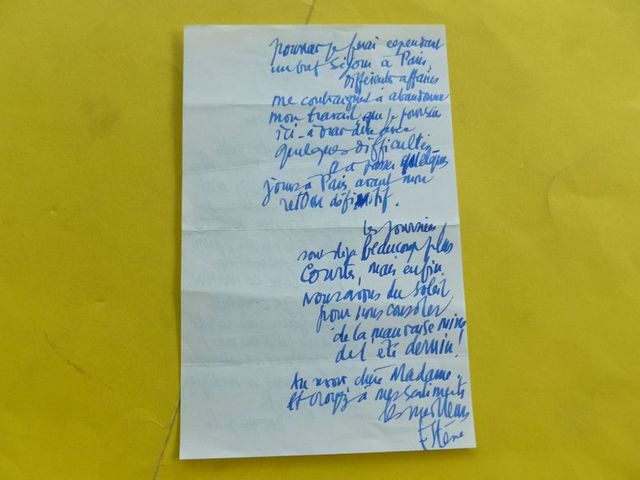 pourrai je ferai cependant
un bref séjour à Paris.
Différentes affaires
me contraignent à abandonner
mon travail que je poursuis
ici - à vrai dire avec
quelques difficultés
à passer quelques
jours à Paris avant mon
retour définitif.
Les journées
sont déjà beaucoup plus
courtes, mais enfin
nous avons du soleil
pour nous consoler
de la mauvaise mine
de l'été dernier!
Au revoir chère Madame
et croyez à mes sentiments
les meilleurs